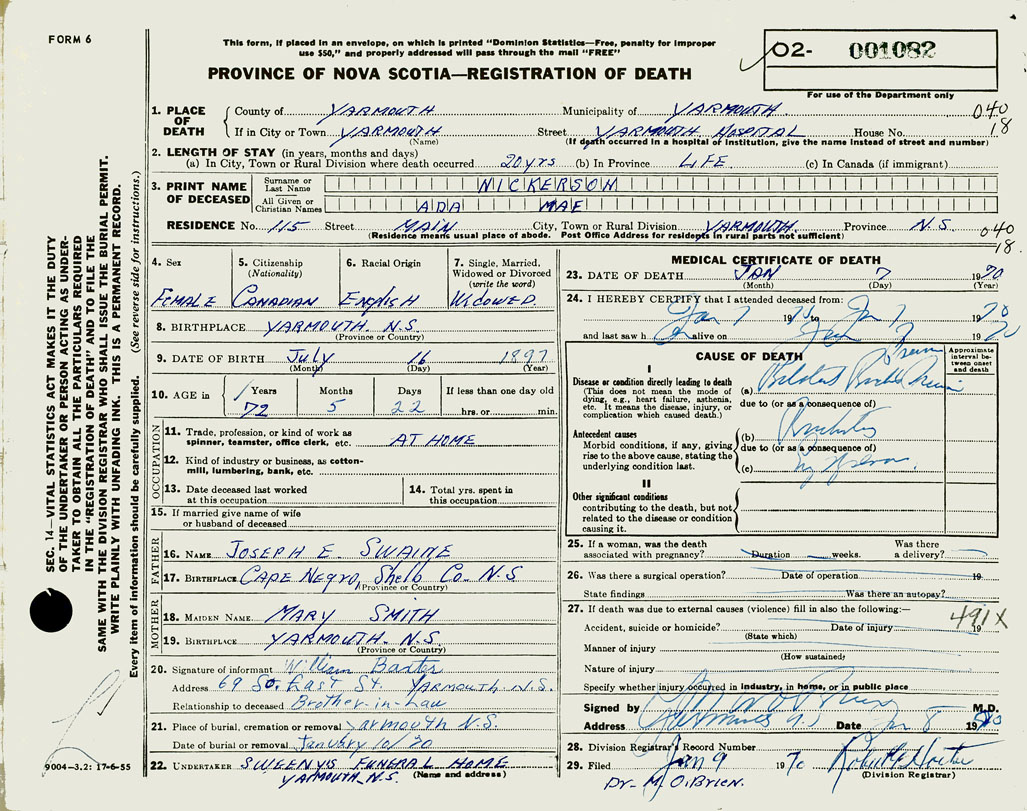 FORM 6
This form, if placed in an envelope, on which is printed "Dominion Statistics—Free, penalty for improper
use $50," and properly addressed will pass through the mail "FREE"
PROVINCE OF NOVA SCOTIA—REGISTRATION OF DEATH
02- 001082
For use of the Department only
SEC. 14—VITAL STATISTICS ACT MAKES IT THE DUTY
OF THE UNDERTAKER OR PERSON ACTING AS UNDER-
TAKER TO OBTAIN ALL THE PARTICULARS REQUIRED
IN THE "REGISTRATION OF DEATH" AND TO FILE THE
SAME WITH THE DIVISION REGISTRAR WHO SHALL ISSUE THE BURIAL PERMIT.
WRITE PLAINLY WITH UNFADING INK. THIS IS A PERMANENT RECORD.
Every item of information should be carefully supplied. (See reverse side for instructions.)
9004—3.2: 17-6-55
1. PLACE OF DEATH
County of YARMOUTH Municipality of YARMOUTH 040
If in City or Town YARMOUTH Street YARMOUTH HOSPITAL House No. 18
(Name) (If death occurred in a hospital of institution, give the name instead of street and number)
2. LENGTH OF STAY (in years, months and days)
(a) In City, Town or Rural Division where death occurred 20 yrs (b) In Province LIFE (c) In Canada (if immigrant)
3. PRINT NAME OF DECEASED
Surname or Last Name NICKERSON
All Given or Christian Names ADA MAE
RESIDENCE No. 115 Street MAIN City, Town or Rural Division YARMOUTH Province N.S. 040
(Residence means usual place of abode. Post Office Address for residents in rural parts not sufficient) 18.
4. Sex FEMALE
5. Citizenship (Nationality) CANADIAN
6. Racial Origin ENGLISH
7. Single, Married, Widowed or Divorced (write the word) WIDOWED
8. BIRTHPLACE YARMOUTH. N.S.
(Province or Country)
9. DATE OF BIRTH July 16 1897
(Month) (Day) (Year)
10. AGE in Years Months Days If less than one day old
72 5 22 hrs. or min.
OCCUPATION
11. Trade, profession, or kind of work as
spinner, teamster, office clerk, etc. AT HOME
12. Kind of industry or business, as cotton-
mill, lumbering, bank, etc.
13. Date deceased last worked
at this occupation
14. Total yrs. spent in
this occupation
15. If married give name of wife
or husband of deceased
FATHER
16. NAME JOSEPH E. SWAINE
17. BIRTHPLACE CAPE NEGRO, Shelb Co. N.S
(Province or Country)
MOTHER
18. MAIDEN NAME MARY SMITH
19. BIRTHPLACE YARMOUTH. N.S.
(Province or Country)
20. Signature of informant William Baxter
Address 69 So. East St. YARMOUTH N.S.
Relationship to deceased Brother-in-Law
21. Place of burial, cremation or removal Yarmouth N.S.
Date of burial or removal January 10/70
22. UNDERTAKER SWEENYS FUNERAL HOME
YARMOUTH, N.S. (Name and address)
MEDICAL CERTIFICATE OF DEATH
23. DATE OF DEATH JAN 7 1970
(Month) (Day) (Year)
24. I HEREBY CERTIFY that I attended deceased from:
Jan 7 1970 to Jan 7 1970
and last saw h alive on Jan 7 1970
CAUSE OF DEATH
Approximate interval between onset and death
I
Disease or condition directly leading to death
(This does not mean the mode of
dying, e.g., heart failure, asthenia,
etc. It means the disease, injury, or
complication which caused death.)
(a)
due to (or as a consequence of)
Antecedent causes
Morbid conditions, if any, giving
rise to the above cause, stating the
underlying condition last.
(b)
due to (or as a consequence of)
(c)
II
Other significant conditions
contributing to the death, but not
related to the disease or condition
causing it.
25. If a woman, was the death
associated with pregnancy? Duration weeks. Was there
a delivery?
26. Was there a surgical operation? Date of operation 19
State findings Was there an autopsy?
27. If death was due to external causes (violence) fill in also the following:— 491X
Accident, suicide or homicide? Date of injury 19
(State which)
Manner of injury
(How sustained)
Nature of injury
Specify whether injury occurred in industry, in home, or in public place
Signed by M.D.
Address Date Jan 8 1970
28. Division Registrar's Record Number
29. Filed Jan 9 1970
(Division Registrar)
Dr. M. O'BRIEN.